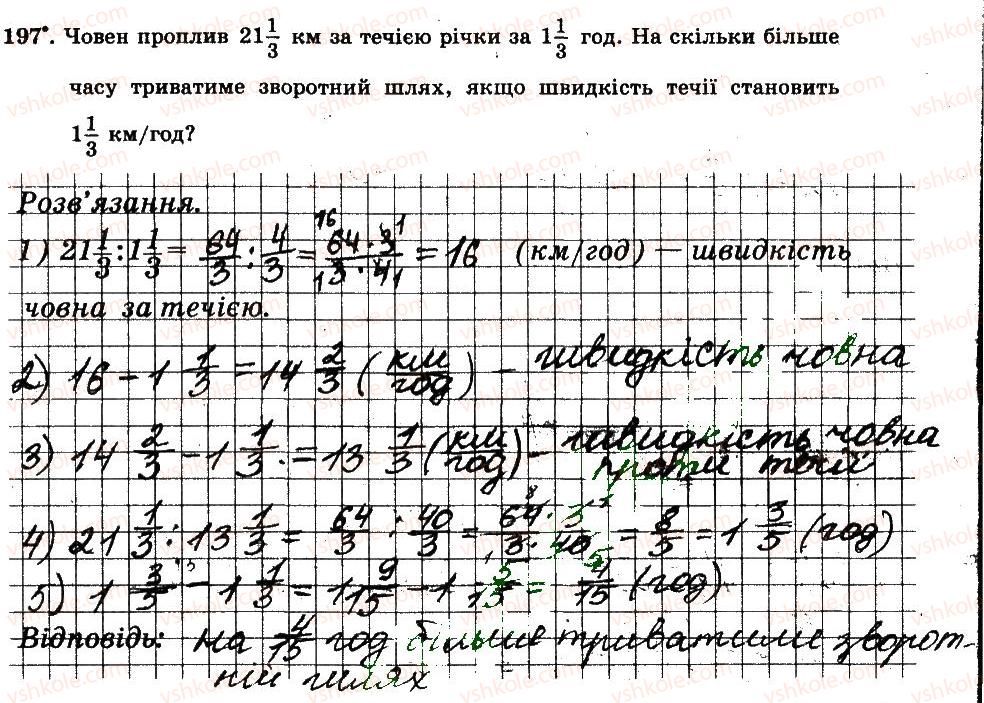 197°. Човен проплив 21 1/3 км за течією річки за 1 1/3 год. На скільки більше
часу триватиме зворотний шлях, якщо швидкість течії становить
1 1/3 км/год?
Розв'язання.
1) 21 1/3 : 1 1/3 = 64/3 : 4/3 = 64 · 3 / 3 · 4 = 16 (км/год) — швидкість
човна за течією.
2) 16 - 1 1/3 = 14 2/3 (км/год) - швидкість човна
3) 14 2/3 - 1 1/3 = 13 1/3 (км/год) - швидкість човна
проти течії
4) 21 1/3 : 13 1/3 = 64/3 : 40/3 = 64 · 3 / 3 · 40 = 8/5 = 1 3/5 (год)
5) 1 3/5 - 1 1/3 = 1 9/15 - 1 5/15 = 4/15 (год)
Відповідь: на 4/15 год більше триватиме зворот-
ній шлях